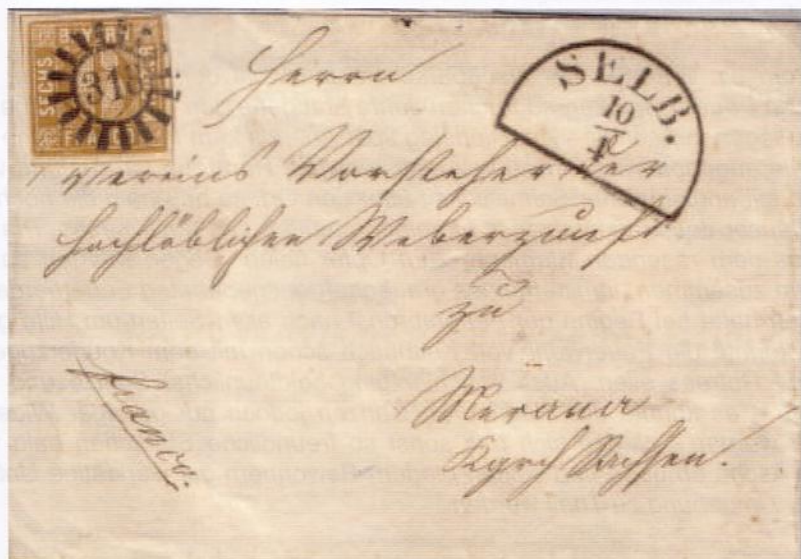 BAYERN
SECHS
318
SELB.
10
Herrn
Vereins Vorsteher der
hochlöblichen Weberzunft
zu
Merana
Kgrch Sachsen.
Franco.